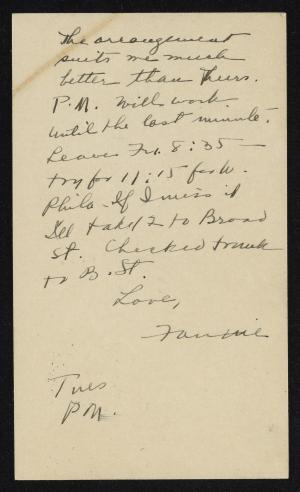 The arrangement
suits me much
better than Thurs.
P.M. Will work
until the last minute.
Leave Fri. 8:35 —
try for 11:15 for W.
Phila - If I miss it
I'll take 12 to Broad
St. Checked trunk
to B. St.
Love,
Fannie
Tues
P.M.